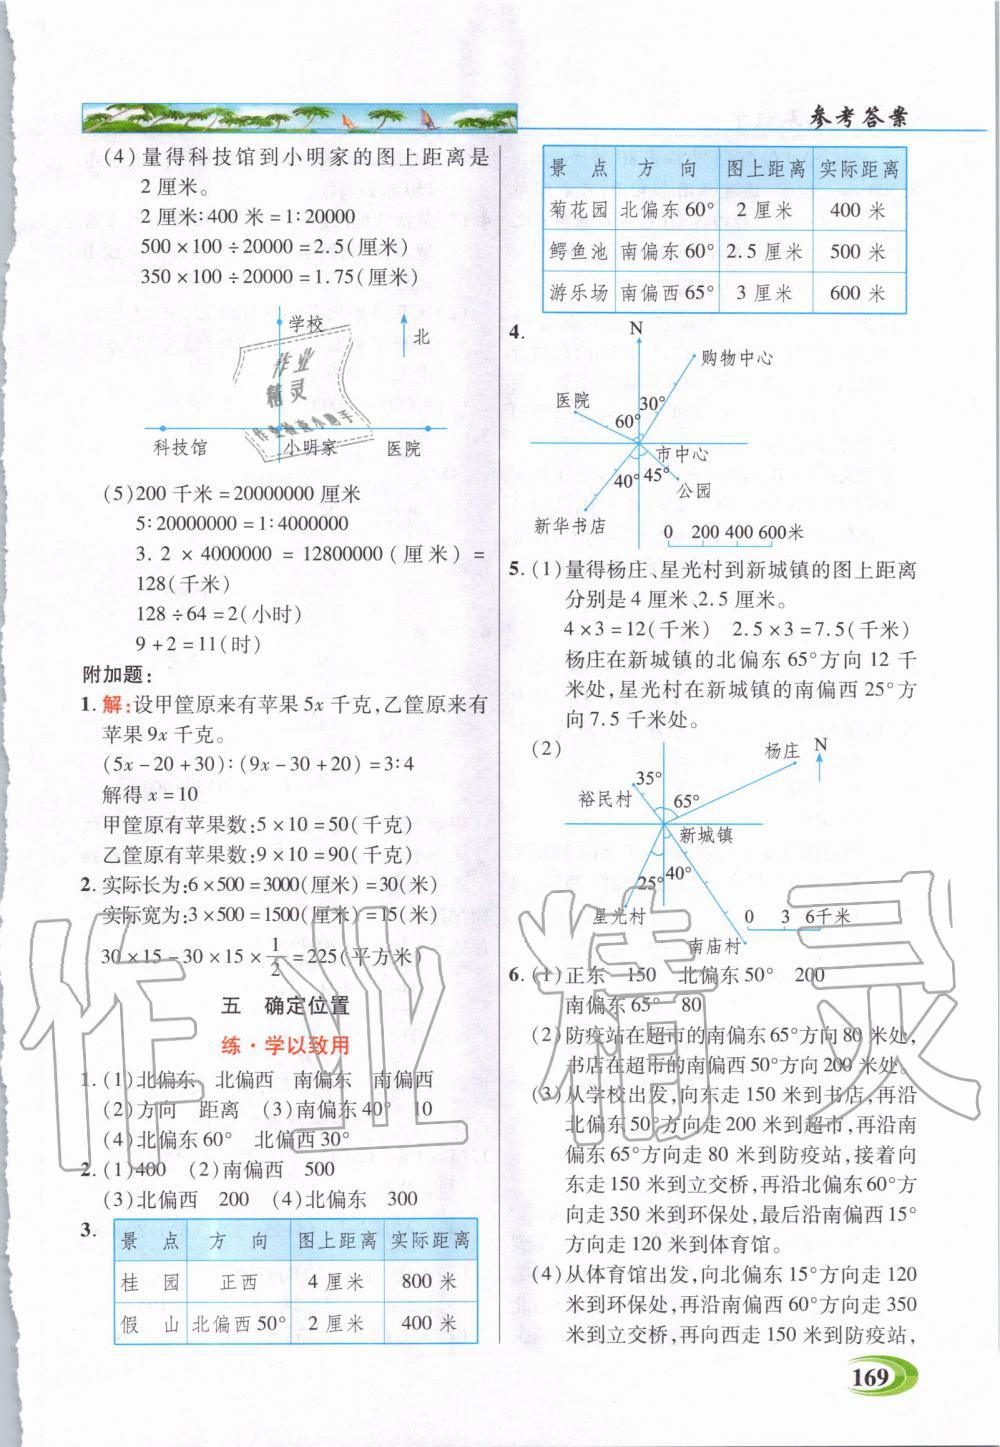 参考答案
(4)量得科技馆到小明家的图上距离是
2厘米。
2厘米∶400米=1∶20000
500×100÷20000=2.5(厘米)
350×100÷20000=1.75(厘米)
学校
北
科技馆 小明家 医院
(5)200千米=20000000厘米
5∶20000000=1∶4000000
3.2×4000000=12800000(厘米)=
128(千米)
128÷64=2(小时)
9+2=11(时)
附加题:
1.解:设甲筐原来有苹果5x千克,乙筐原来有
苹果9x千克。
(5x-20+30)∶(9x-30+20)=3∶4
解得x=10
甲筐原有苹果数:5×10=50(千克)
乙筐原有苹果数:9×10=90(千克)
2.实际长为:6×500=3000(厘米)=30(米)
实际宽为:3×500=1500(厘米)=15(米)
30×15-30×15×1/2=225(平方米)
五 确定位置
练·学以致用
1.(1)北偏东 北偏西 南偏东 南偏西
(2)方向 距离 (3)南偏东40° 10
(4)北偏东60° 北偏西30°
2.(1)400 (2)南偏西 500
(3)北偏西 200 (4)北偏东 300
3.
景点 方向 图上距离 实际距离
桂园 正西 4厘米 800米
假山 北偏西50° 2厘米 400米
景点 方向 图上距离 实际距离
菊花园 北偏东60° 2厘米 400米
鳄鱼池 南偏东60° 2.5厘米 500米
游乐场 南偏西65° 3厘米 600米
4.
N
购物中心
医院
30°
60°
市中心
40° 45°
公园
新华书店
0 200 400 600米
5.(1)量得杨庄、星光村到新城镇的图上距离
分别是4厘米、2.5厘米。
4×3=12(千米) 2.5×3=7.5(千米)
杨庄在新城镇的北偏东65°方向12千
米处,星光村在新城镇的南偏西25°方
向7.5千米处。
(2)
杨庄 N
35°
裕民村 65°
新城镇
25° 40°
星光村 0 3 6千米
南庙村
6.(1)正东 150 北偏东50° 200
南偏东65° 80
(2)防疫站在超市的南偏东65°方向80米处,
书店在超市的南偏西50°方向200米处。
(3)从学校出发,向东走150米到书店,再沿
北偏东50°方向走200米到超市,再沿南
偏东65°方向走80米到防疫站,接着向
东走150米到立交桥,再沿北偏东60°方
向走350米到环保处,最后沿南偏西15°
方向走120米到体育馆。
(4)从体育馆出发,向北偏东15°方向走120
米到环保处,再沿南偏西60°方向走350
米到立交桥,再向西走150米到防疫站,
169
作业
精灵
作业检查小助手
作业精灵